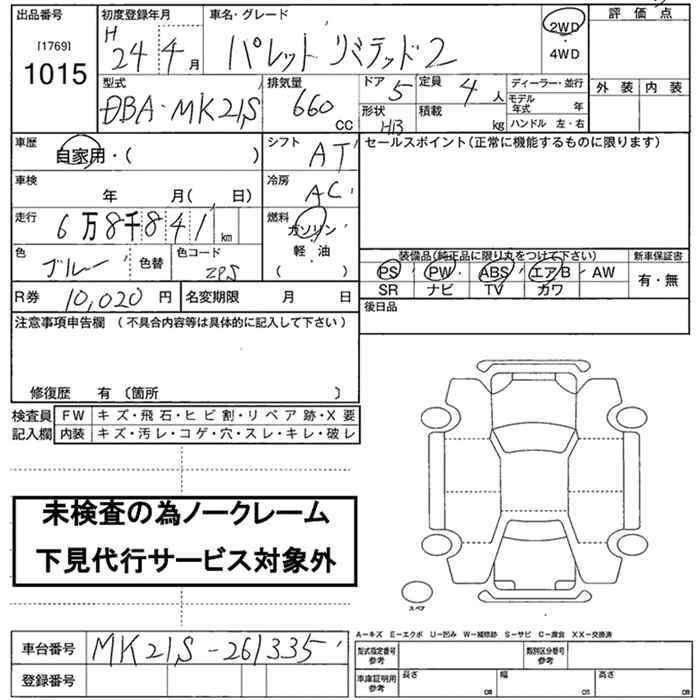 出品番号 初度登録年月 車名・グレード 評価点
[1769] 1015 H 24 4月 パレット リミテッド2 2WD・4WD
型式 排気量 ドア 5 定員 4人 ディーラー・並行 外装 内装
DBA-MK21S 660 CC 形状 HB 積載 kg モデル年式 年
ハンドル 左・右
車歴 自家用・( ) シフト AT セールスポイント(正常に機能するものに限ります)
車検 年 月( 日) 冷房 AC
走行 6万8千841km 燃料 ガソリン・軽油 ( )
色 ブルー 色替 色コード ZPS
装備品(純正品に限り丸をつけて下さい) 新車保証書
PS PW ABS エアB AW 有・無
SR ナビ TV カワ
R券 10,020円 名変期限 月 日 後日品
注意事項申告欄 (不具合内容等は具体的に記入して下さい)
修復歴 有 (箇所 )
検査員 FW キズ・飛石・ヒビ割・リペア跡・X要
記入欄 内装 キズ・汚レ・コゲ・穴・スレ・キレ・破レ
未検査の為ノークレーム
下見代行サービス対象外
スペア
A—キズ E—エクボ U—凹み W—補修跡 S—サビ C—腐食 XX—交換済
車台番号 MK21S-261335 型式指定番号 参考 類別区分番号 参考
登録番号 車庫証明用 参考 長さ cm 幅 cm 高さ cm